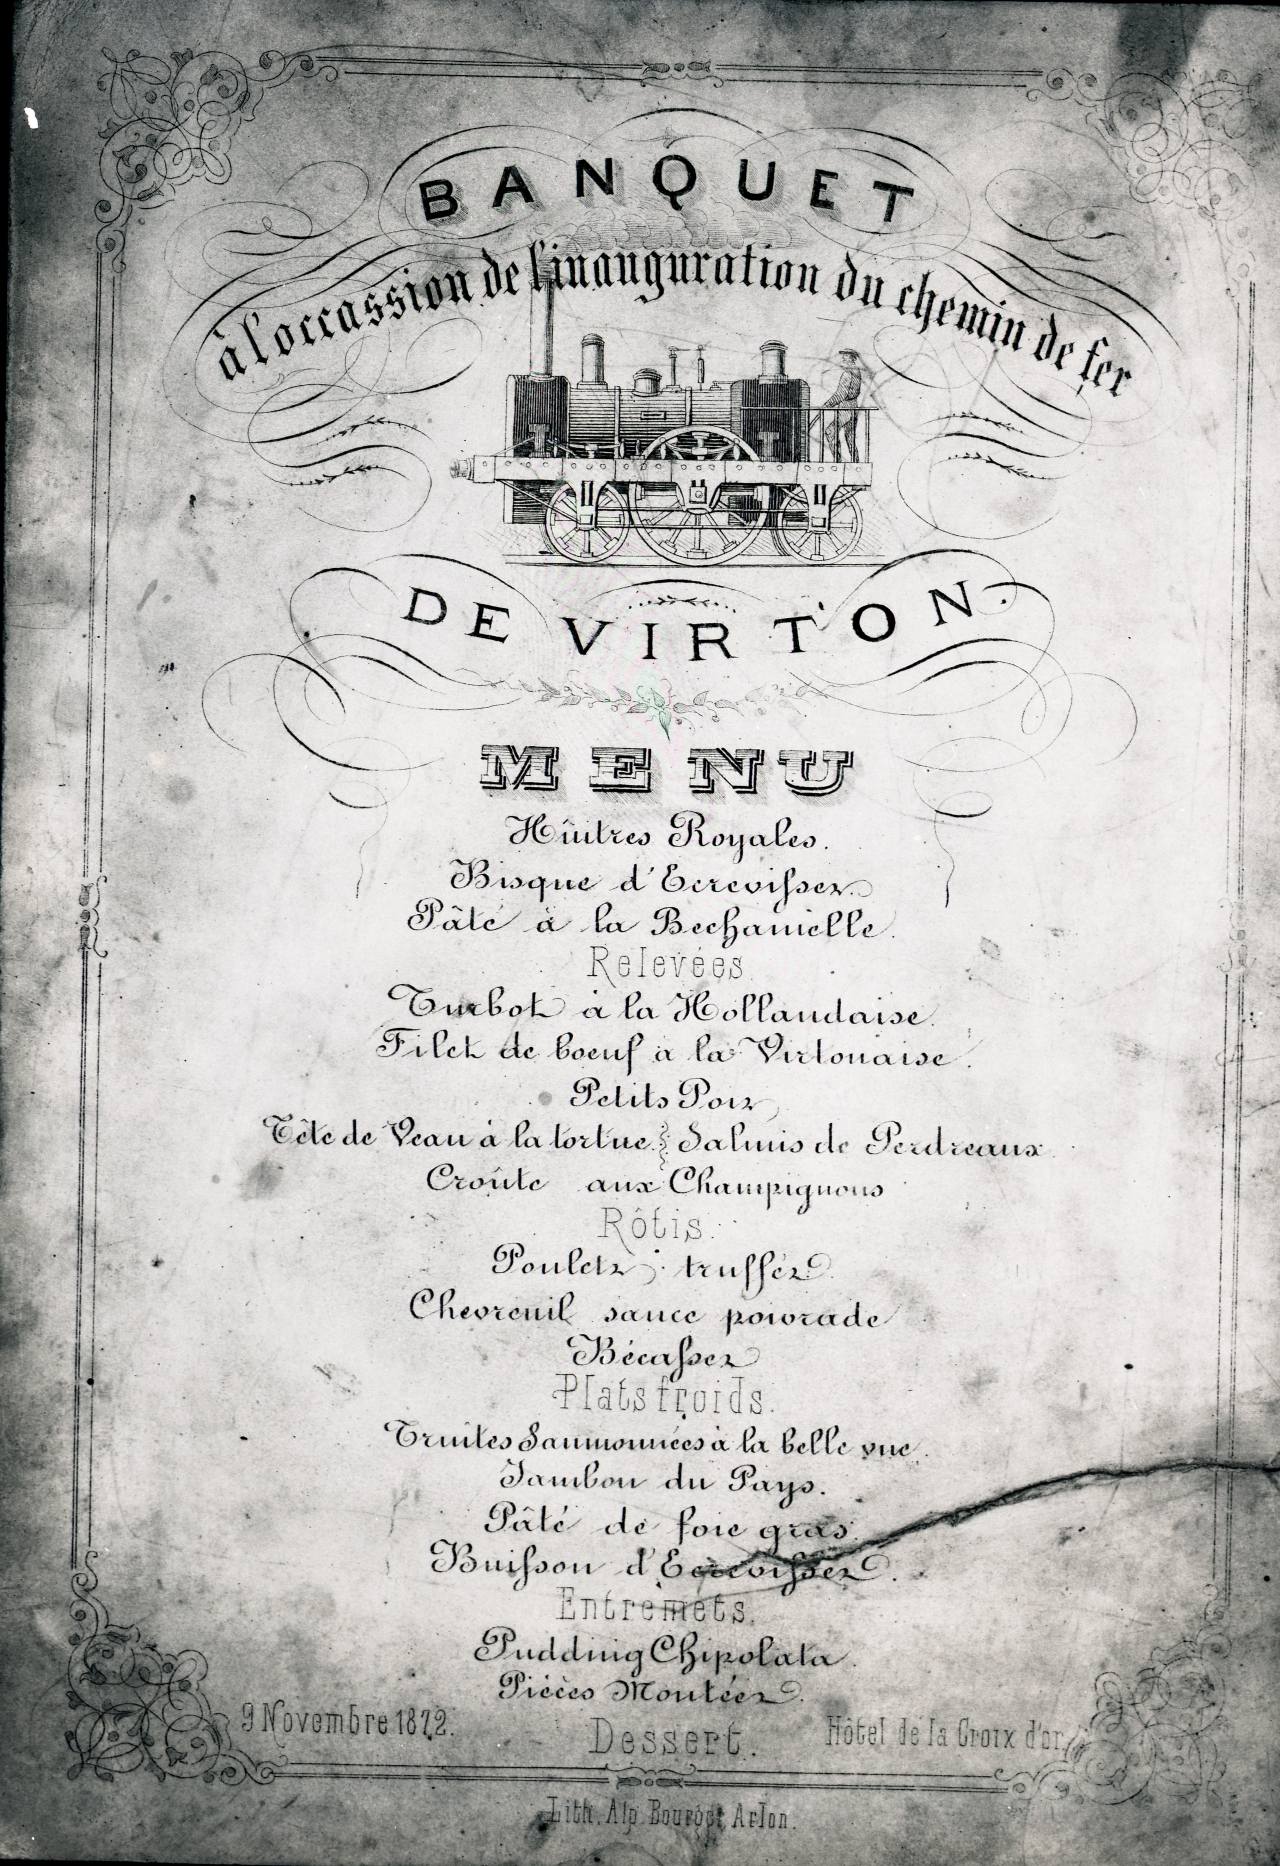 BANQUET
à l'occassion de l'inauguration du chemin de fer
DE VIRTON.
MENU
Hûitres Royales.
Bisque d'Ecrevisses.
Pâté à la Bechamelle.
Relevées
Turbot à la Hollandaise.
Filet de boeuf à la Virtonaise.
Petits Pois
Tête de Veau à la tortue. Salmis de Perdreaux
Croûte aux Champignons
Rôtis.
Poulets truffés.
Chevreuil sauce poivrade
Bécasses
Plats froids.
Truites Saumonnées à la belle vue.
Jambon du Pays.
Pâté de foie gras.
Buisson d'Ecrevisses.
Entremets.
Pudding Chipolata.
Pièces Montées.
Dessert.
9 Novembre 1872.
Hôtel de la Croix d'or.
Lith. Alp. Bourger, Arlon.